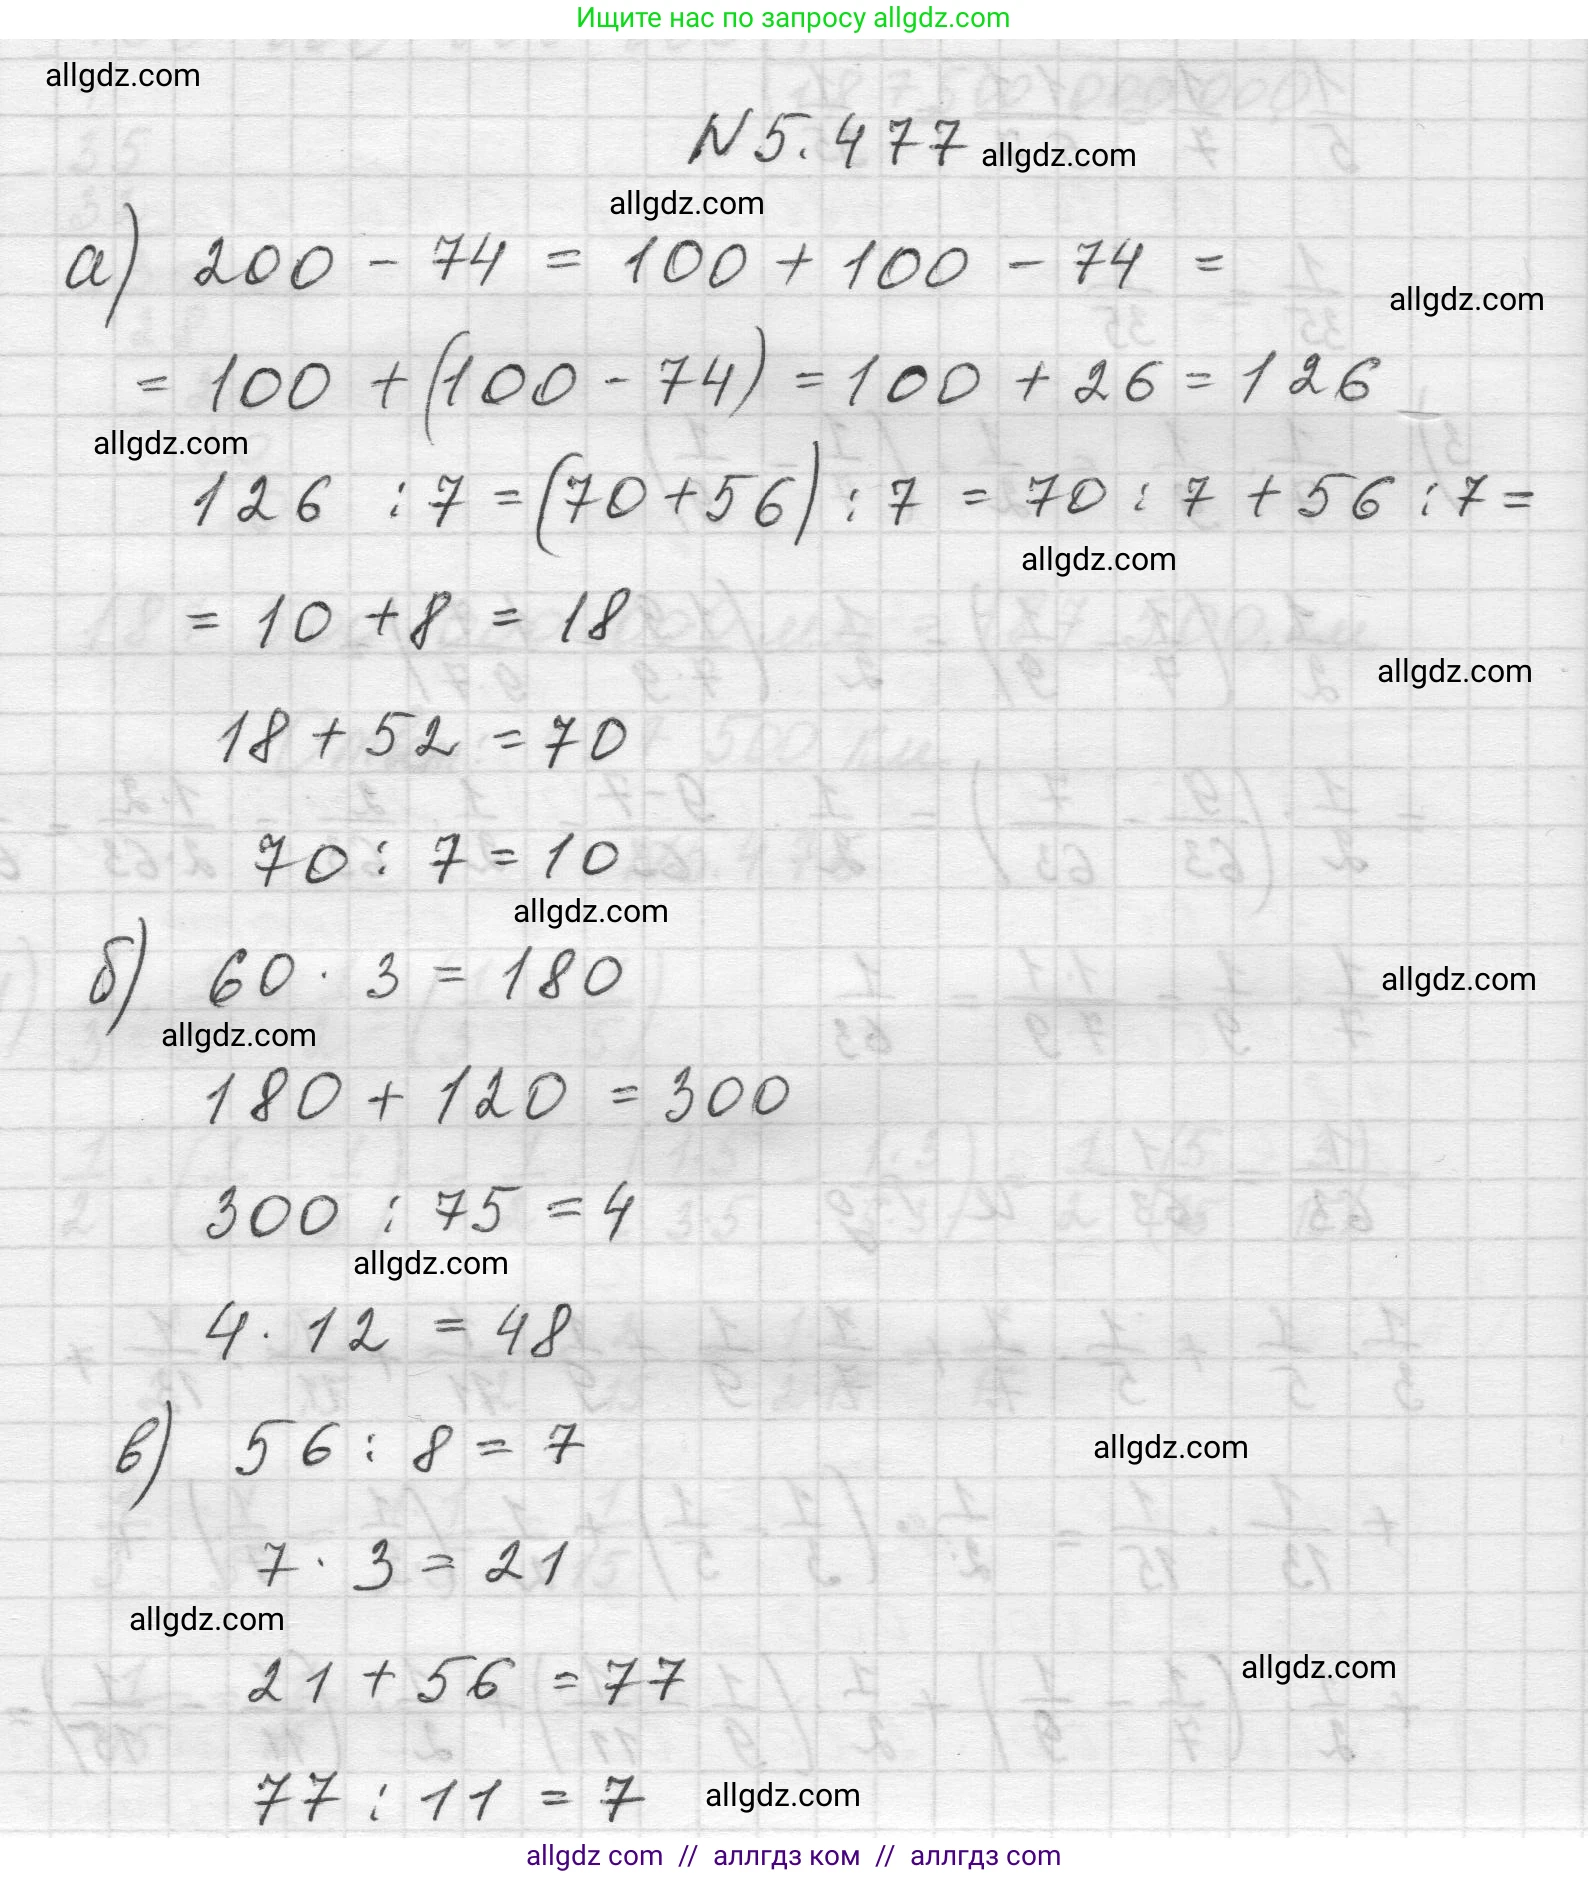 Ищите нас по запросу allgdz.com
allgdz.com
N 5.477 allgdz.com
allgdz.com
а) 200 - 74 = 100 + 100 - 74 =
allgdz.com
= 100 + (100 - 74) = 100 + 26 = 126
allgdz.com
126 : 7 = (70 + 56) : 7 = 70 : 7 + 56 : 7 =
allgdz.com
= 10 + 8 = 18
allgdz.com
18 + 52 = 70
70 : 7 = 10
allgdz.com
б) 60 · 3 = 180
allgdz.com
allgdz.com
180 + 120 = 300
300 : 75 = 4
allgdz.com
4 · 12 = 48
в) 56 : 8 = 7
allgdz.com
7 · 3 = 21
allgdz.com
21 + 56 = 77
allgdz.com
77 : 11 = 7 allgdz.com
allgdz com // аллгдз ком // аллгдз com